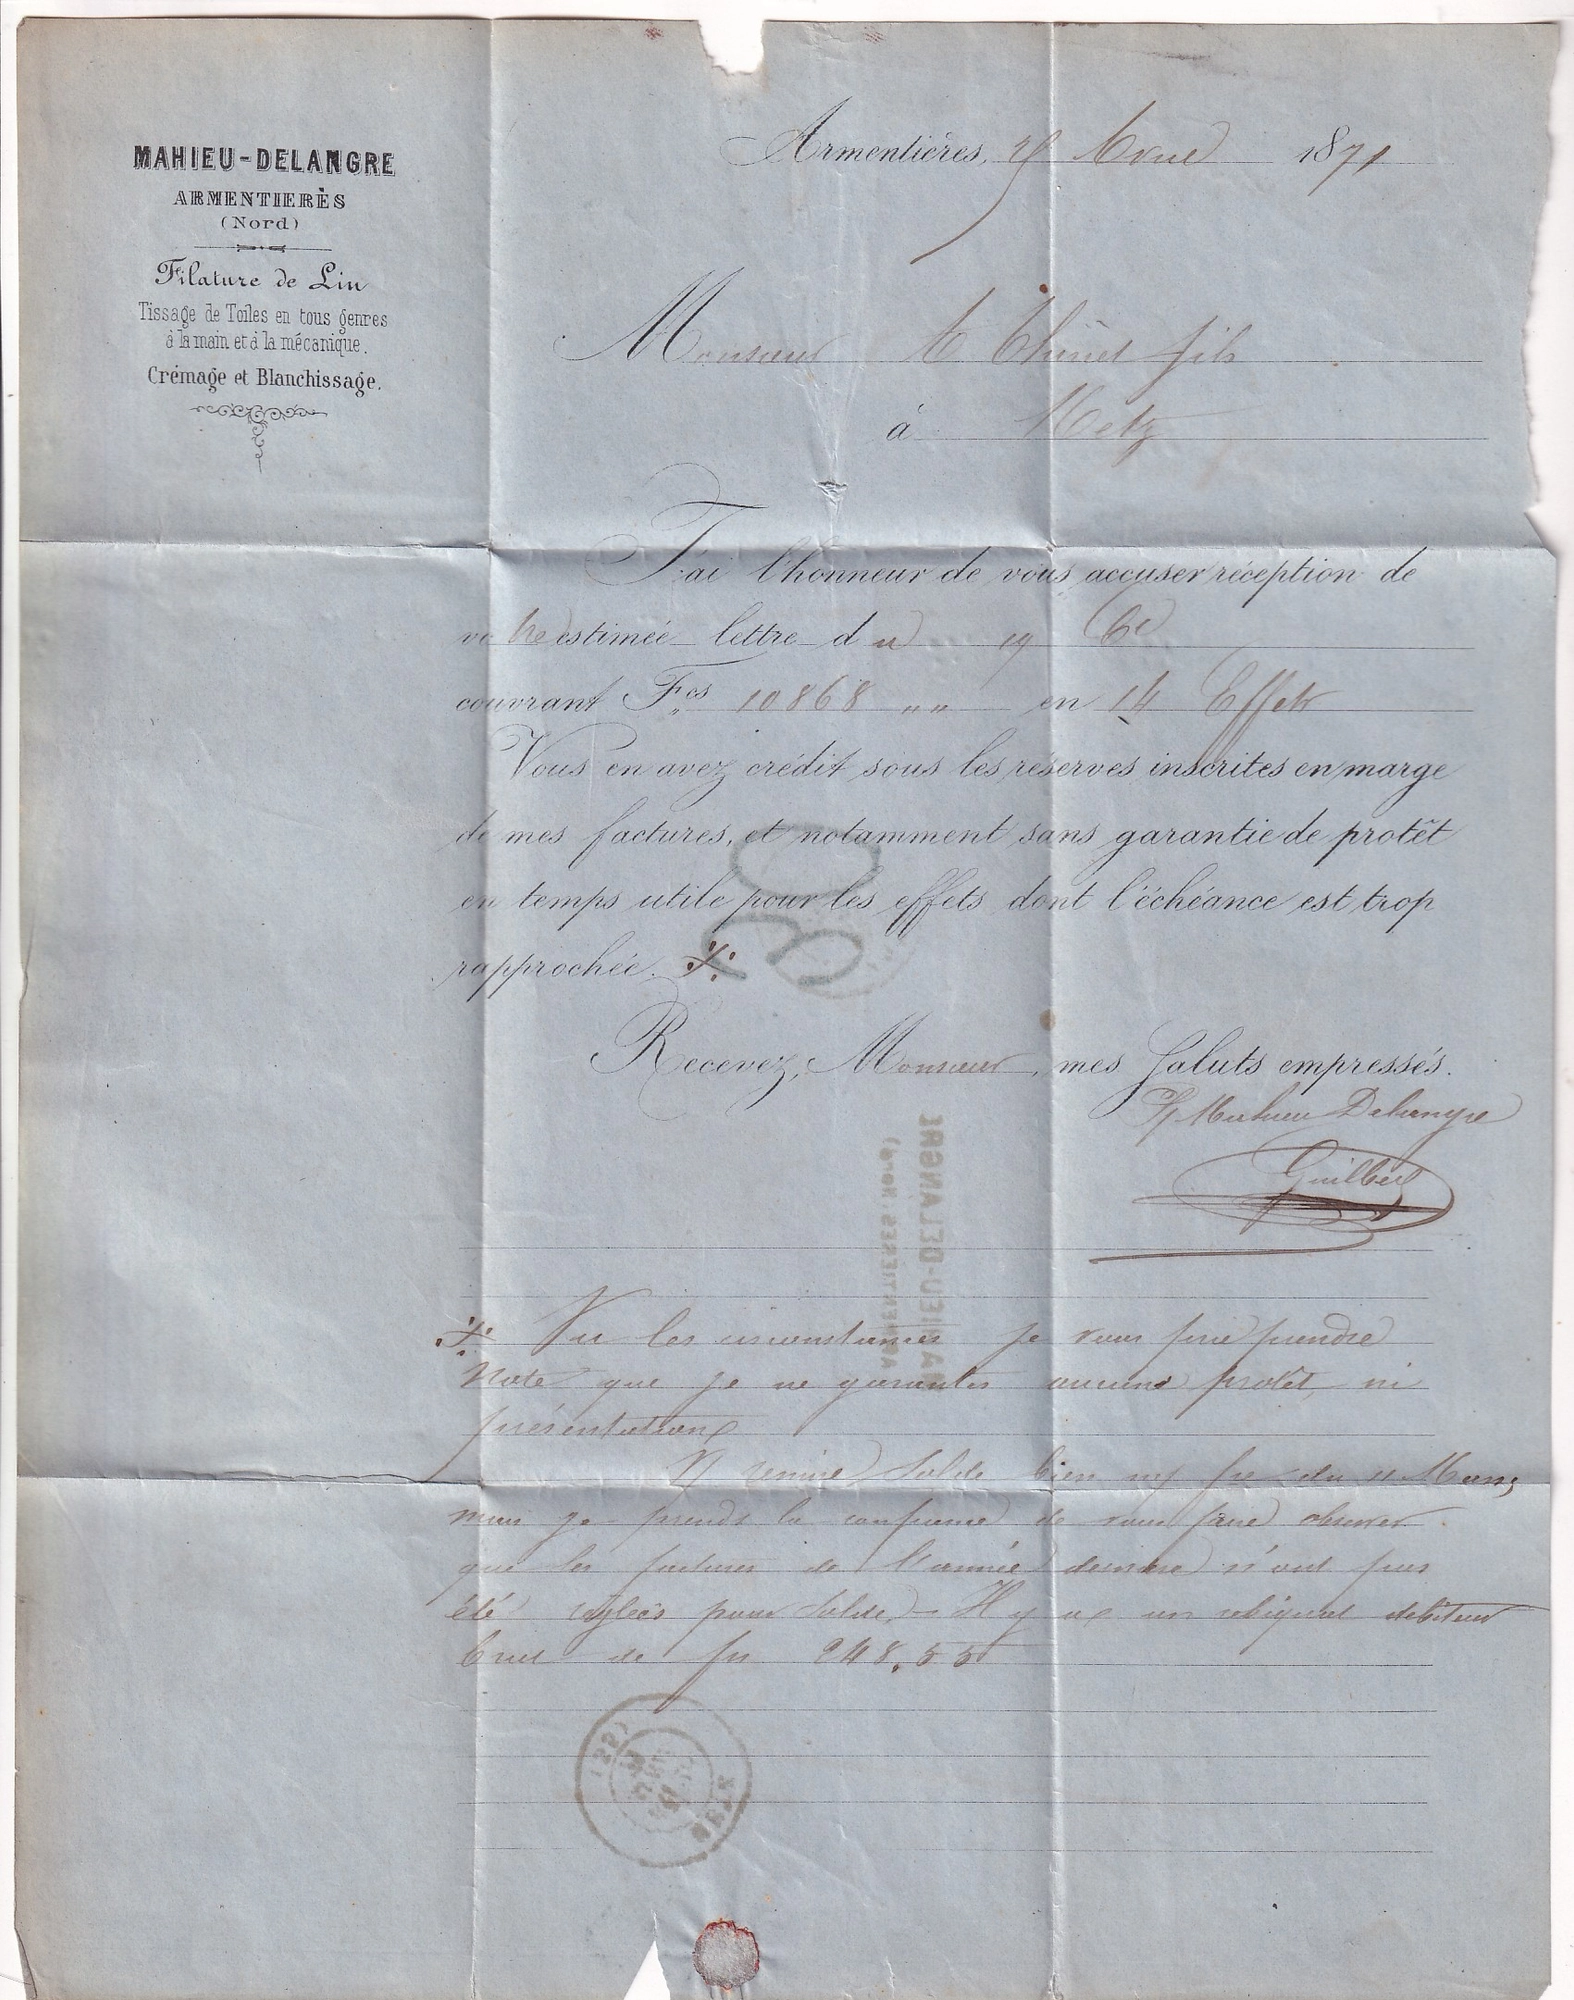 MAHIEU-DELANGRE
ARMENTIERÈS
(Nord)
Filature de Lin
Tissage de Toiles en tous genres
à la main et à la mécanique.
Crémage et Blanchissage.
Armentières, Avril 1871
Monsieur fils
à Metz
J'ai l'honneur de vous accuser réception de
votre estimée lettre du 19 Ct
couvrant Fcs 10868 „„ en 14 Effets
Vous en avez crédit sous les réserves inscrites en marge
de mes factures, et notamment sans garantie de protêt
en temps utile pour les effets dont l'échéance est trop
rapprochée. ·/.
Recevez, Monsieur, mes Saluts empressés.
Mahieu Delangre
Guilbert
·/. Vu les circonstances je vous prie prendre
Note que je ne garantis aucuns protêt, ni
présentation
remise solde bien du 11 Mars,
mais je prends la confiance de vous faire observer
que les factures de l'année dernière n'ont pas
été réglées pour solde. – Il y a un reliquat débiteur
de 248.55
80
MAHIEU-DELANGRE
ARMENTIERES (Nord)
METZ
(55)